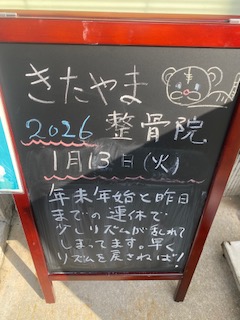 きたやま
2026 整骨院
1月13日(火)
年末年始と昨日
までの連休で
少しリズムが乱れて
しまってます。早く
リズムを戻さねば!